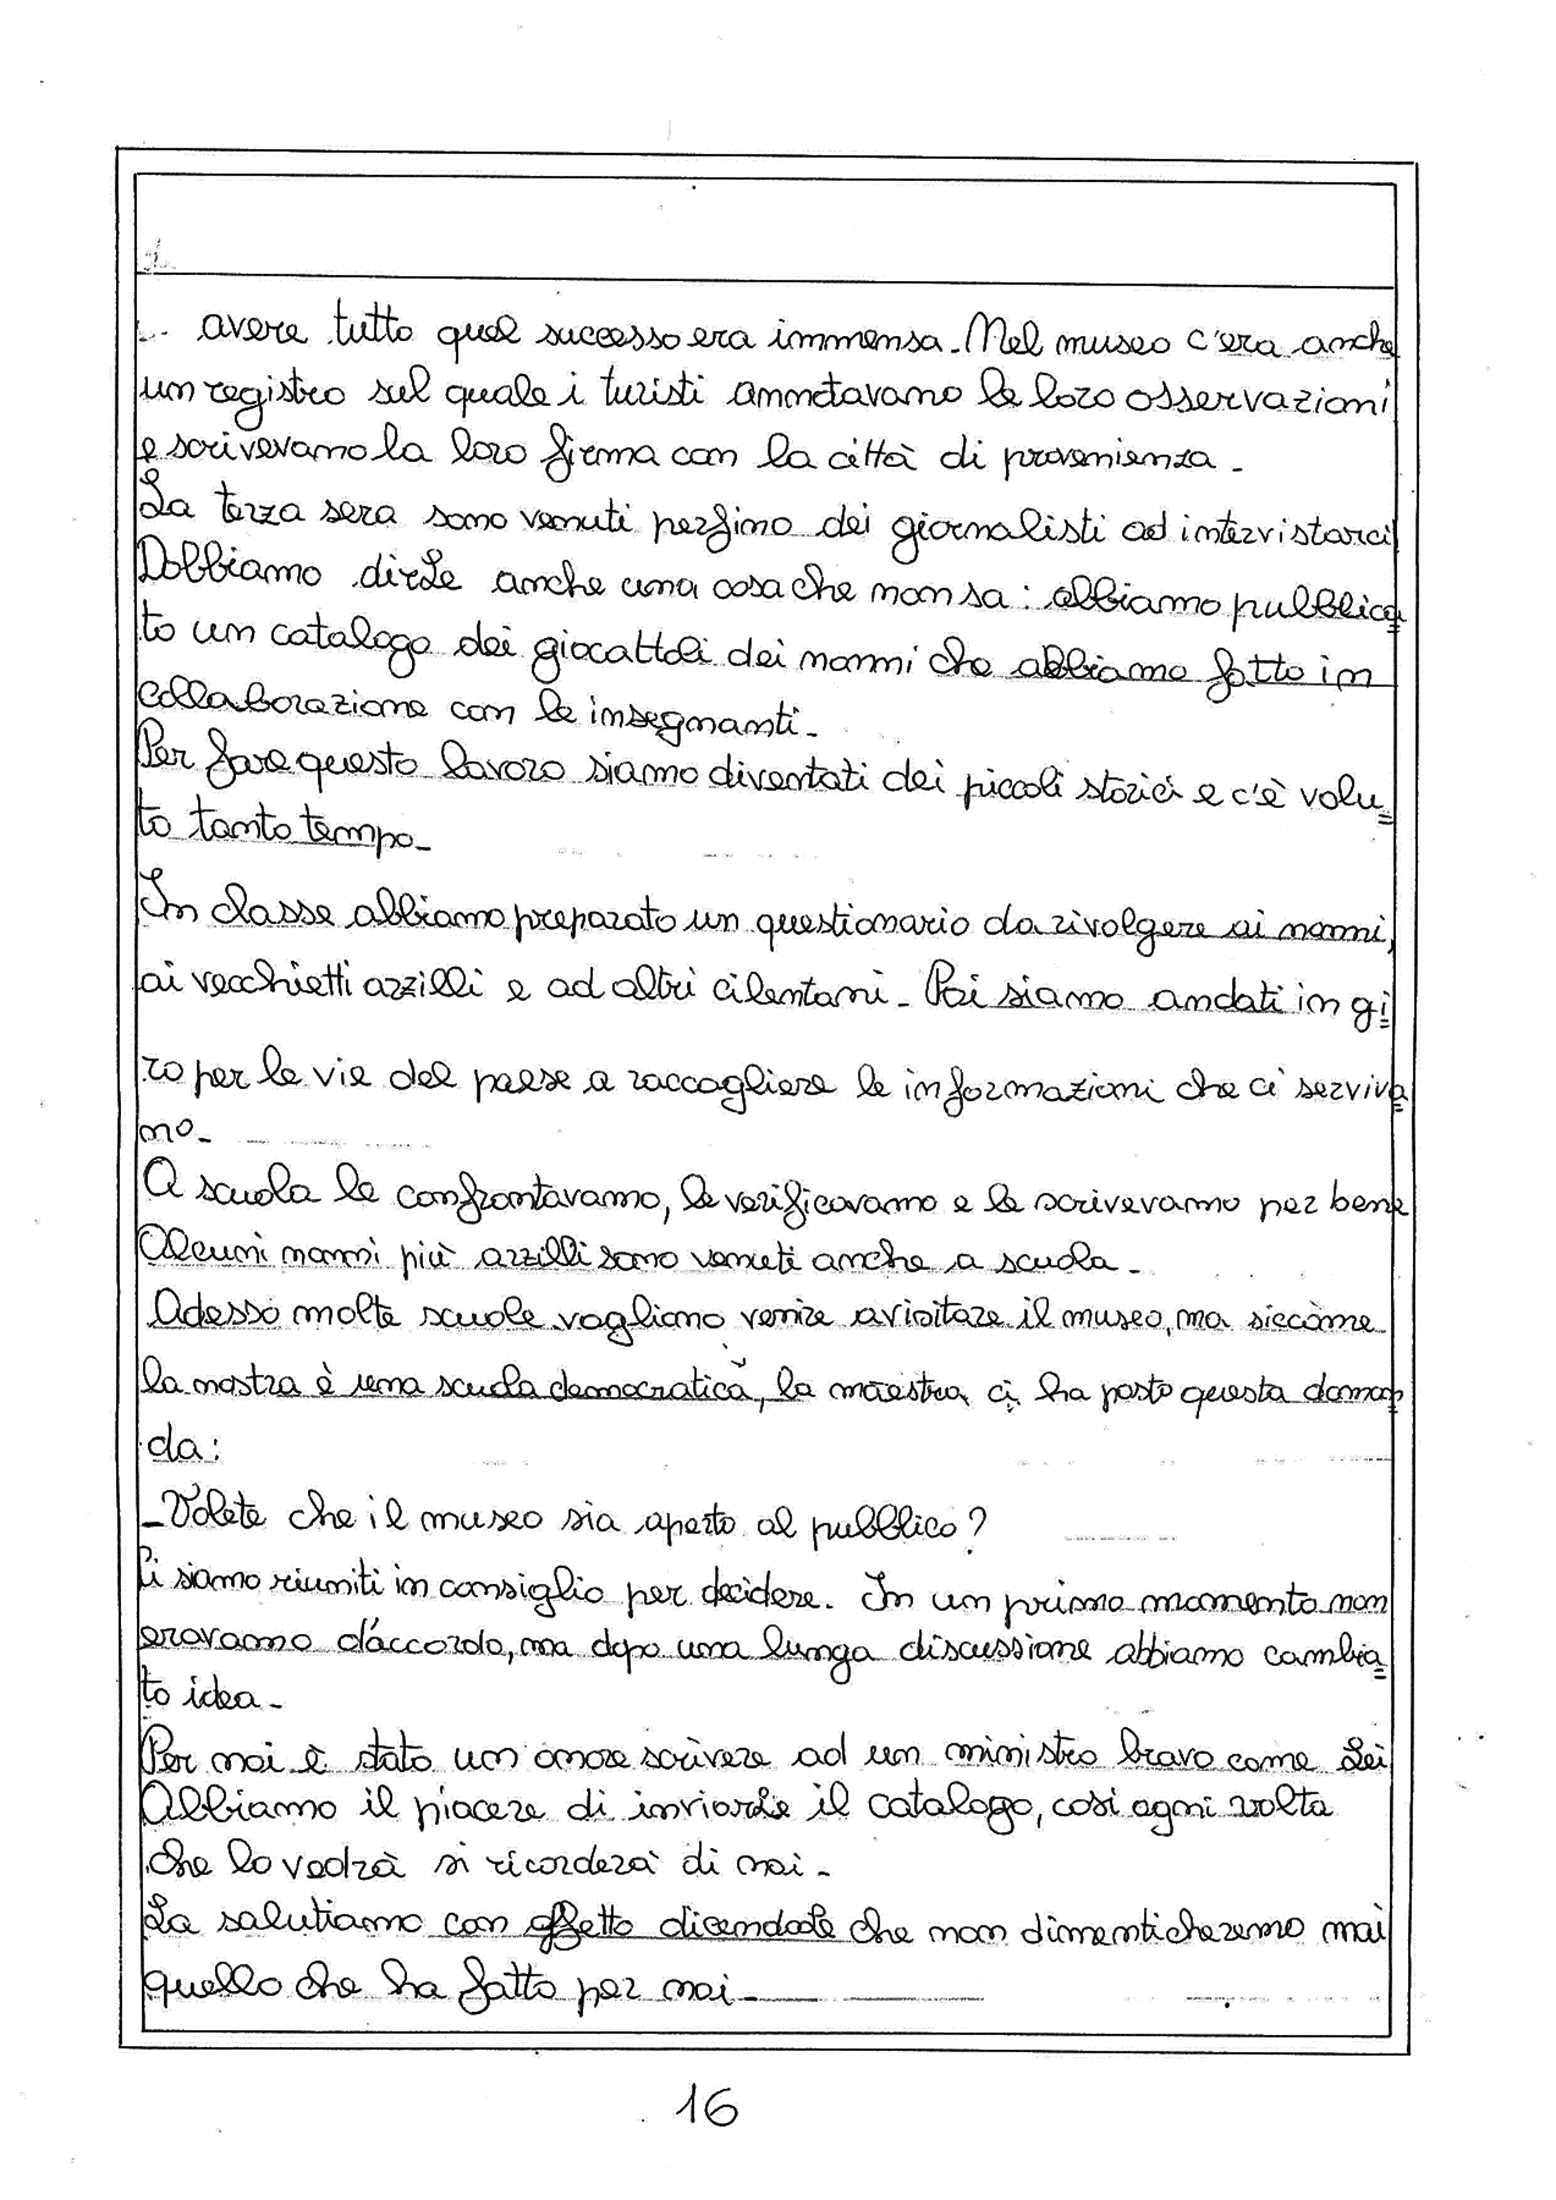 avere tutto quel successo era immensa. Nel museo c'era anche
un registro sul quale i turisti annotavano le loro osservazioni
e scrivevano la loro firma con la città di provenienza.
La terza sera sono venuti perfino dei giornalisti ad intervistarci
Dobbiamo dirLe anche una cosa che non sa: abbiamo pubblica=
to un catalogo dei giocattoli dei nonni che abbiamo fatto in
collaborazione con le insegnanti.
Per fare questo lavoro siamo diventati dei piccoli storici e c'è volu=
to tanto tempo.
In classe abbiamo preparato un questionario da rivolgere ai nonni,
ai vecchietti arzilli e ad altri cilentani. Poi siamo andati in gi=
ro per le vie del paese a raccogliere le informazioni che ci serviva=
no.
A scuola le confrontavamo, le verificavamo e le scrivevamo per bene
Alcuni nonni più arzilli sono venuti anche a scuola.
Adesso molte scuole vogliono venire a visitare il museo, ma siccome
la nostra è una scuola democratica, la maestra ci ha posto questa doman=
da:
_Volete che il museo sia aperto al pubblico?
Ci siamo riuniti in consiglio per decidere. In un primo momento non
eravamo d'accordo, ma dopo una lunga discussione abbiamo cambia=
to idea.
Per noi è stato un onore scrivere ad un ministro bravo come Lei
Abbiamo il piacere di inviarLe il catalogo, così ogni volta
che lo vedrà si ricorderà di noi.
La salutiamo con affetto dicendoLe che non dimenticheremo mai
quello che ha fatto per noi.
16